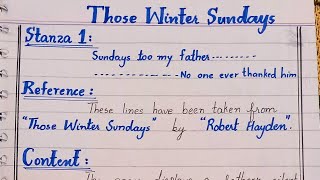 Those Winter Sundays
Stanza 1:
Sundays too my father---------
---------------------No one ever thanked him
Reference:
These lines have been taken from
"Those Winter Sundays" by "Robert Hayden".
Content: